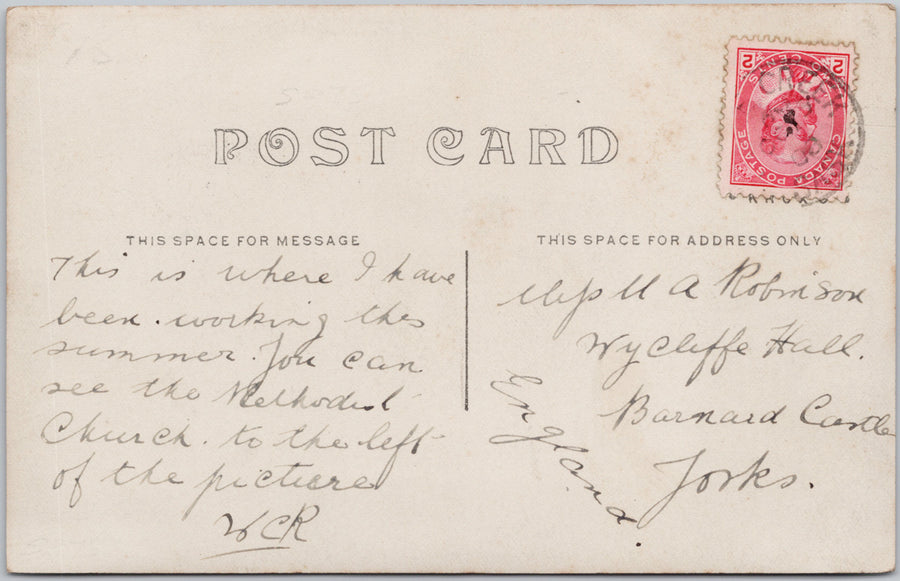 POST CARD
THIS SPACE FOR MESSAGE
This is where I have
been. working this
summer. You can
see the Methodist
Church. to the left
of the picture
WCR
THIS SPACE FOR ADDRESS ONLY
Miss M A Robinson
Wycliffe Hall.
Barnard Castle
Yorks.
England.
CANADA POSTAGE
TWO CENTS
2 2